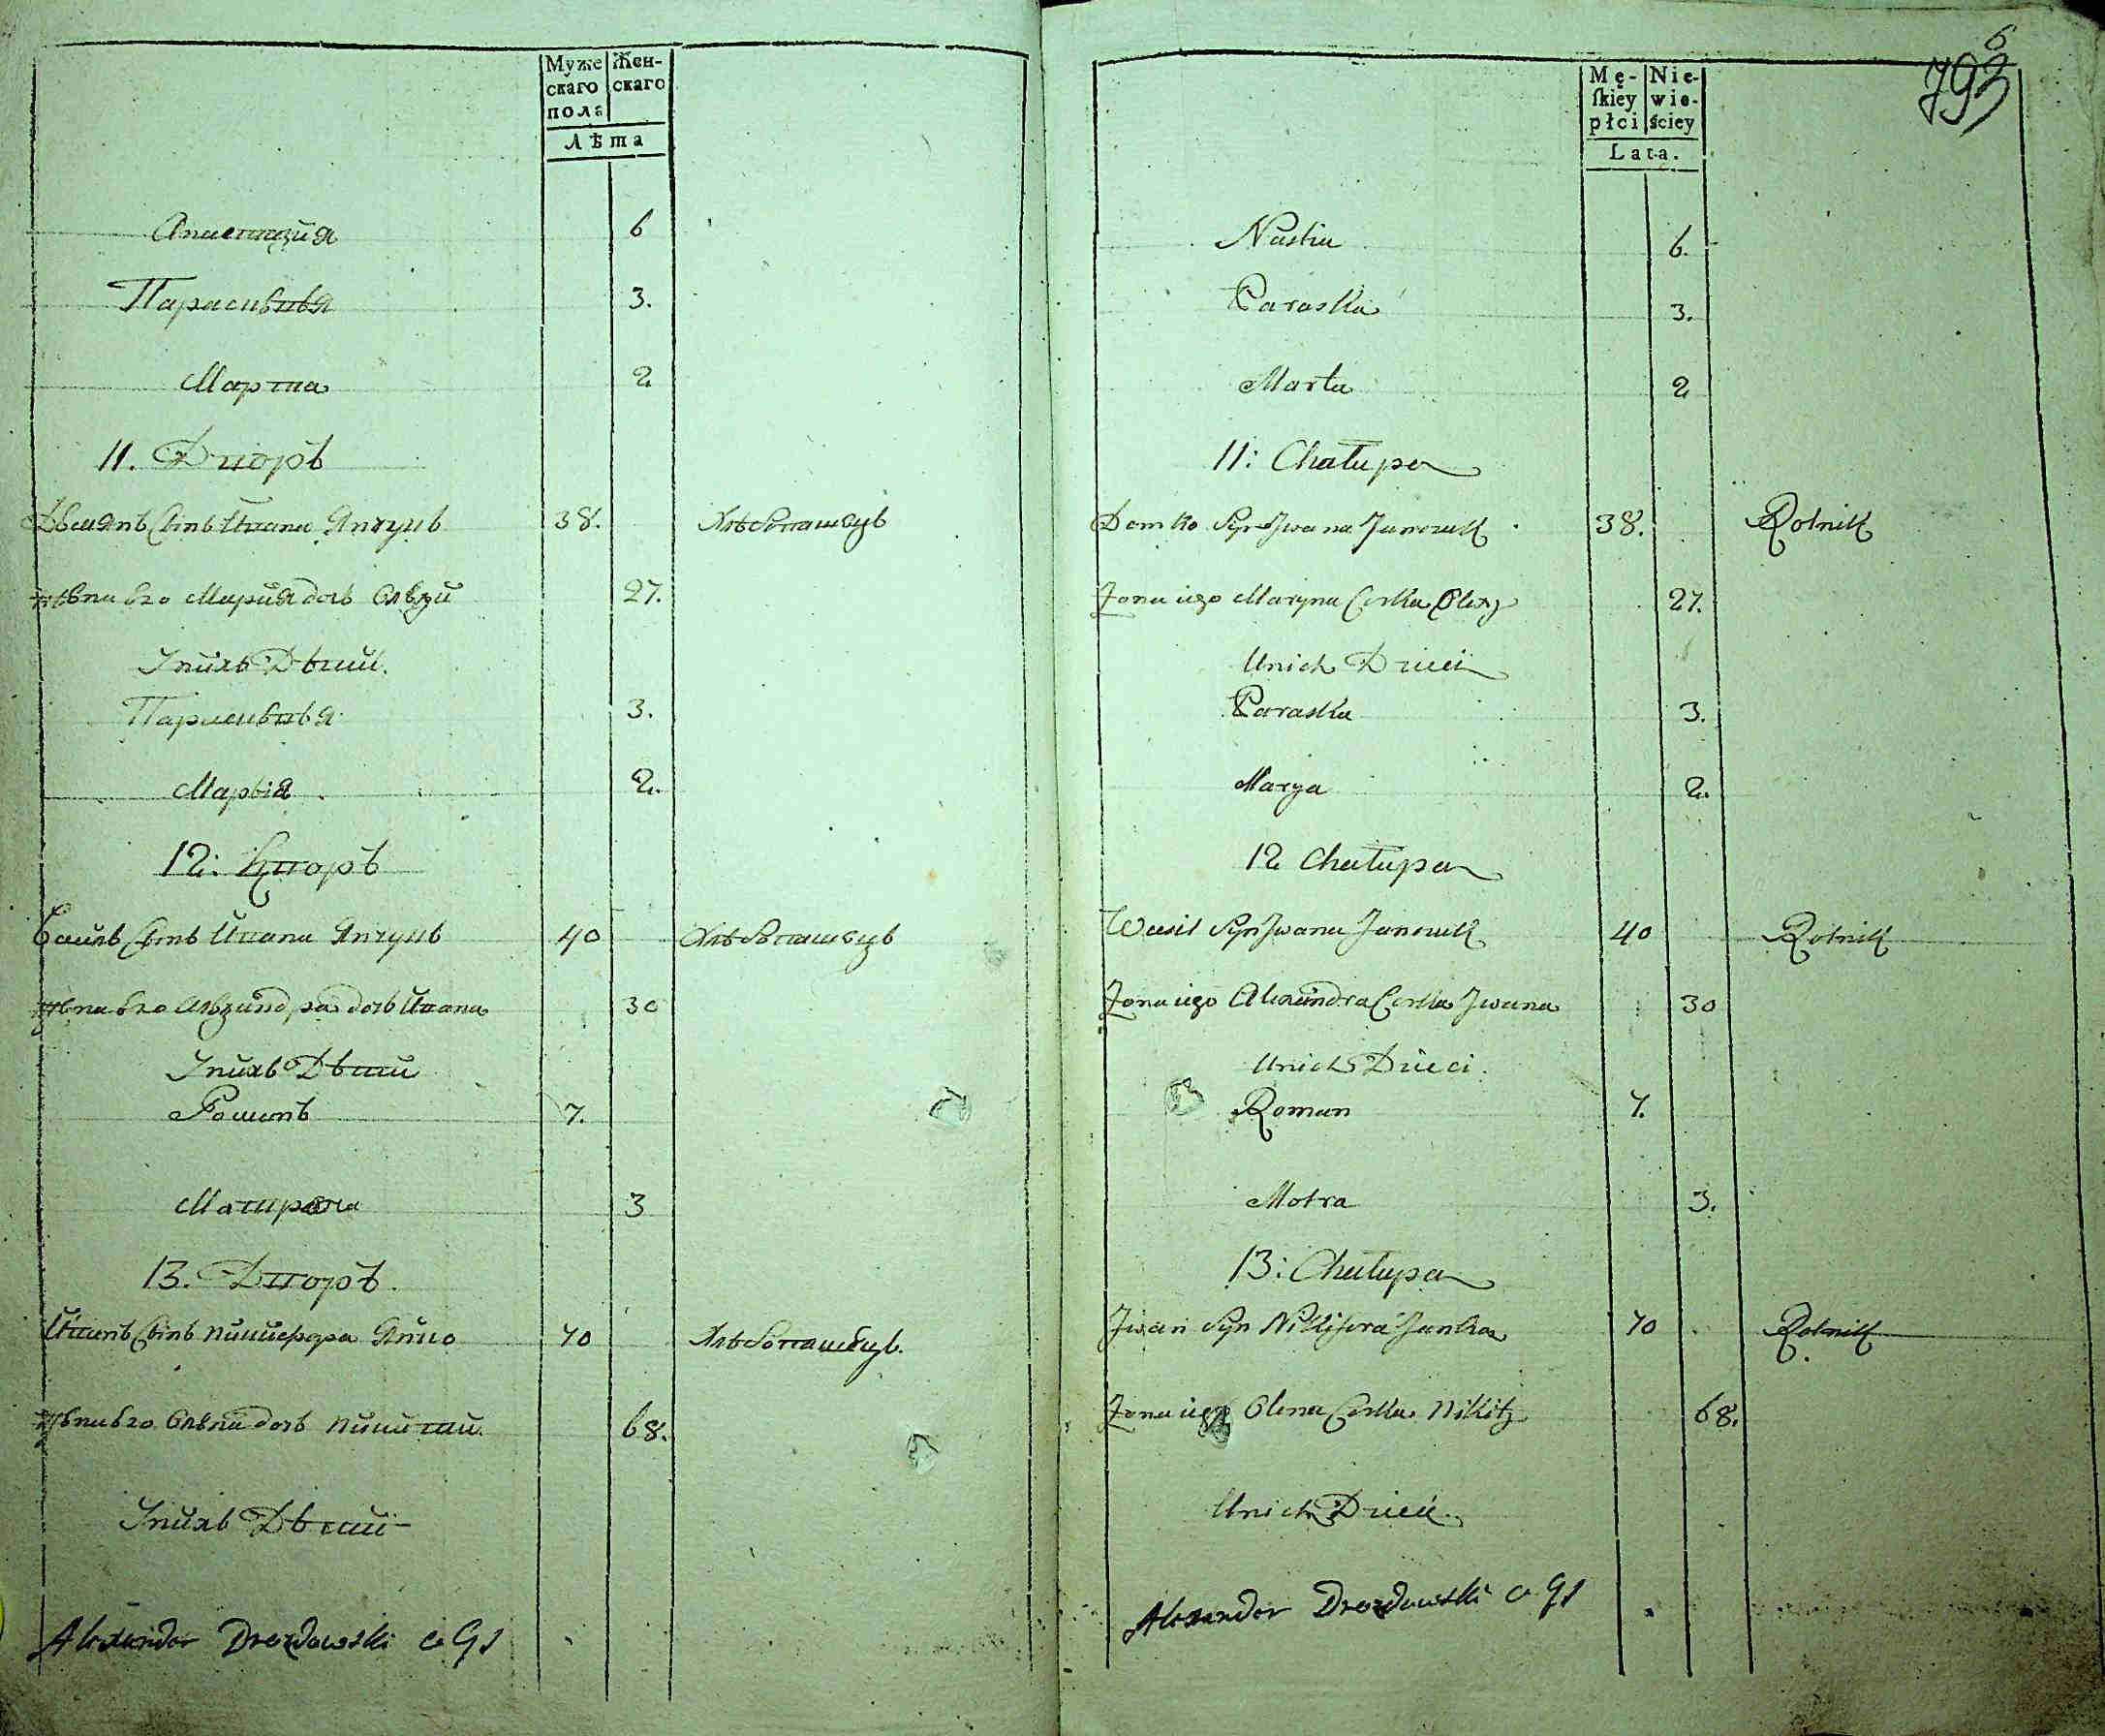 Муже
скаго
пола
Жен-
скаго
Лѣта
Анастазия 6
Парасивия 3.
Марта 2
11. Дворъ
Сынъ Ивана Янчукъ 38. Хлебопашецъ
жена его Мария дочь 27.
У нихъ Дети.
3.
Мария 2.
12: Дворъ
Василь Сынъ Ивана Янчукъ 40 Хлебопашецъ
жена его дочь Ивана 30
У нихъ Дети
Романъ 7.
Матрона 3
13. Дворъ.
Иванъ Сынъ Никифора 70 Хлебопашецъ.
жена его Олена дочь Никити. 68.
У нихъ Дети
Alexander Drozdowski
6
793
Mę-
ſkiey
płci
Nie-
wie-
ściey
Lata.
Nastia 6.
Paraska 3.
Marta 2
11: Chałupa
Demko Syn Iwana Janczuk 38. Rolnik
Zona iego Maryna Corka 27.
Unich Dzieci
Paraska 3.
Marya 2.
12 Chałupa
Wasil Syn Iwana Janczuk 40 Rolnik
Zona iego Alexandra Corka Iwana 30
Unich Dzieci.
Roman 7.
Motra 3.
13: Chałupa
Iwan Syn Nikifora Janka 70 Rolnik
Zona iego Olena Corka Nikity 68.
Unich Dzieci.
Alexander Drozdowski